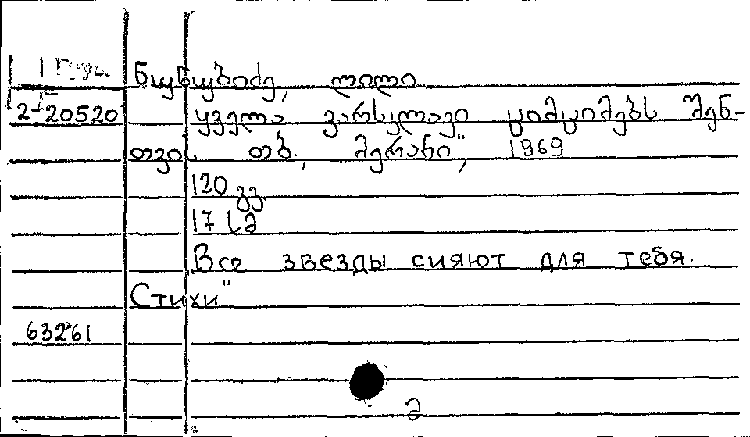 ნუცუბიძე, ლილი
2-20520 ყველა ვარსკვლავი ციმციმებს შენ-
თვის თბ., მერანი", 1969
120 გვ.
17 სმ
Все звезды сияют для тебя.
Стихи"
63261